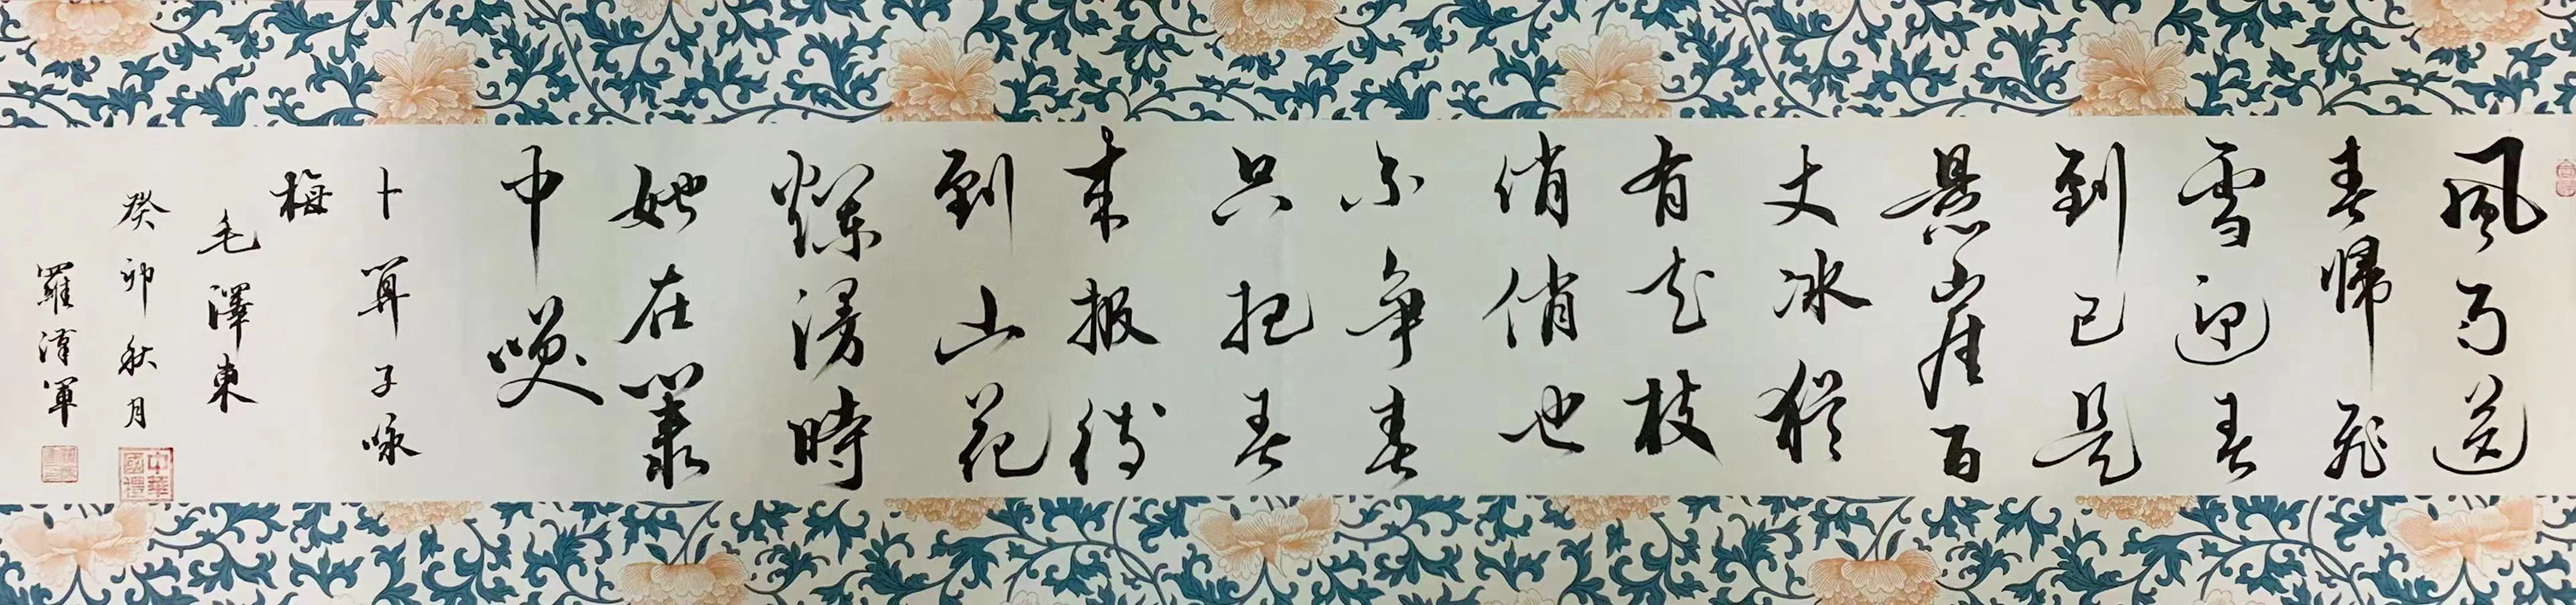 風雨送
春歸飛
雪迎春
到已是
懸崖百
丈冰猶
有花枝
俏俏也
不爭春
只把春
來報待
到山花
爛漫時
她在叢
中咲
卜算子咏
梅
毛澤東
癸卯秋月
中華
國禮
羅漢軍